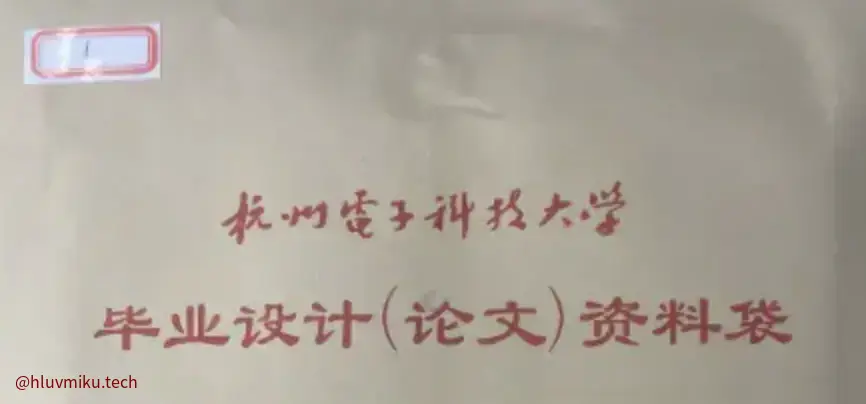 1
杭州電子科技大学
毕业设计(论文)资料袋
@hluvmiku.tech